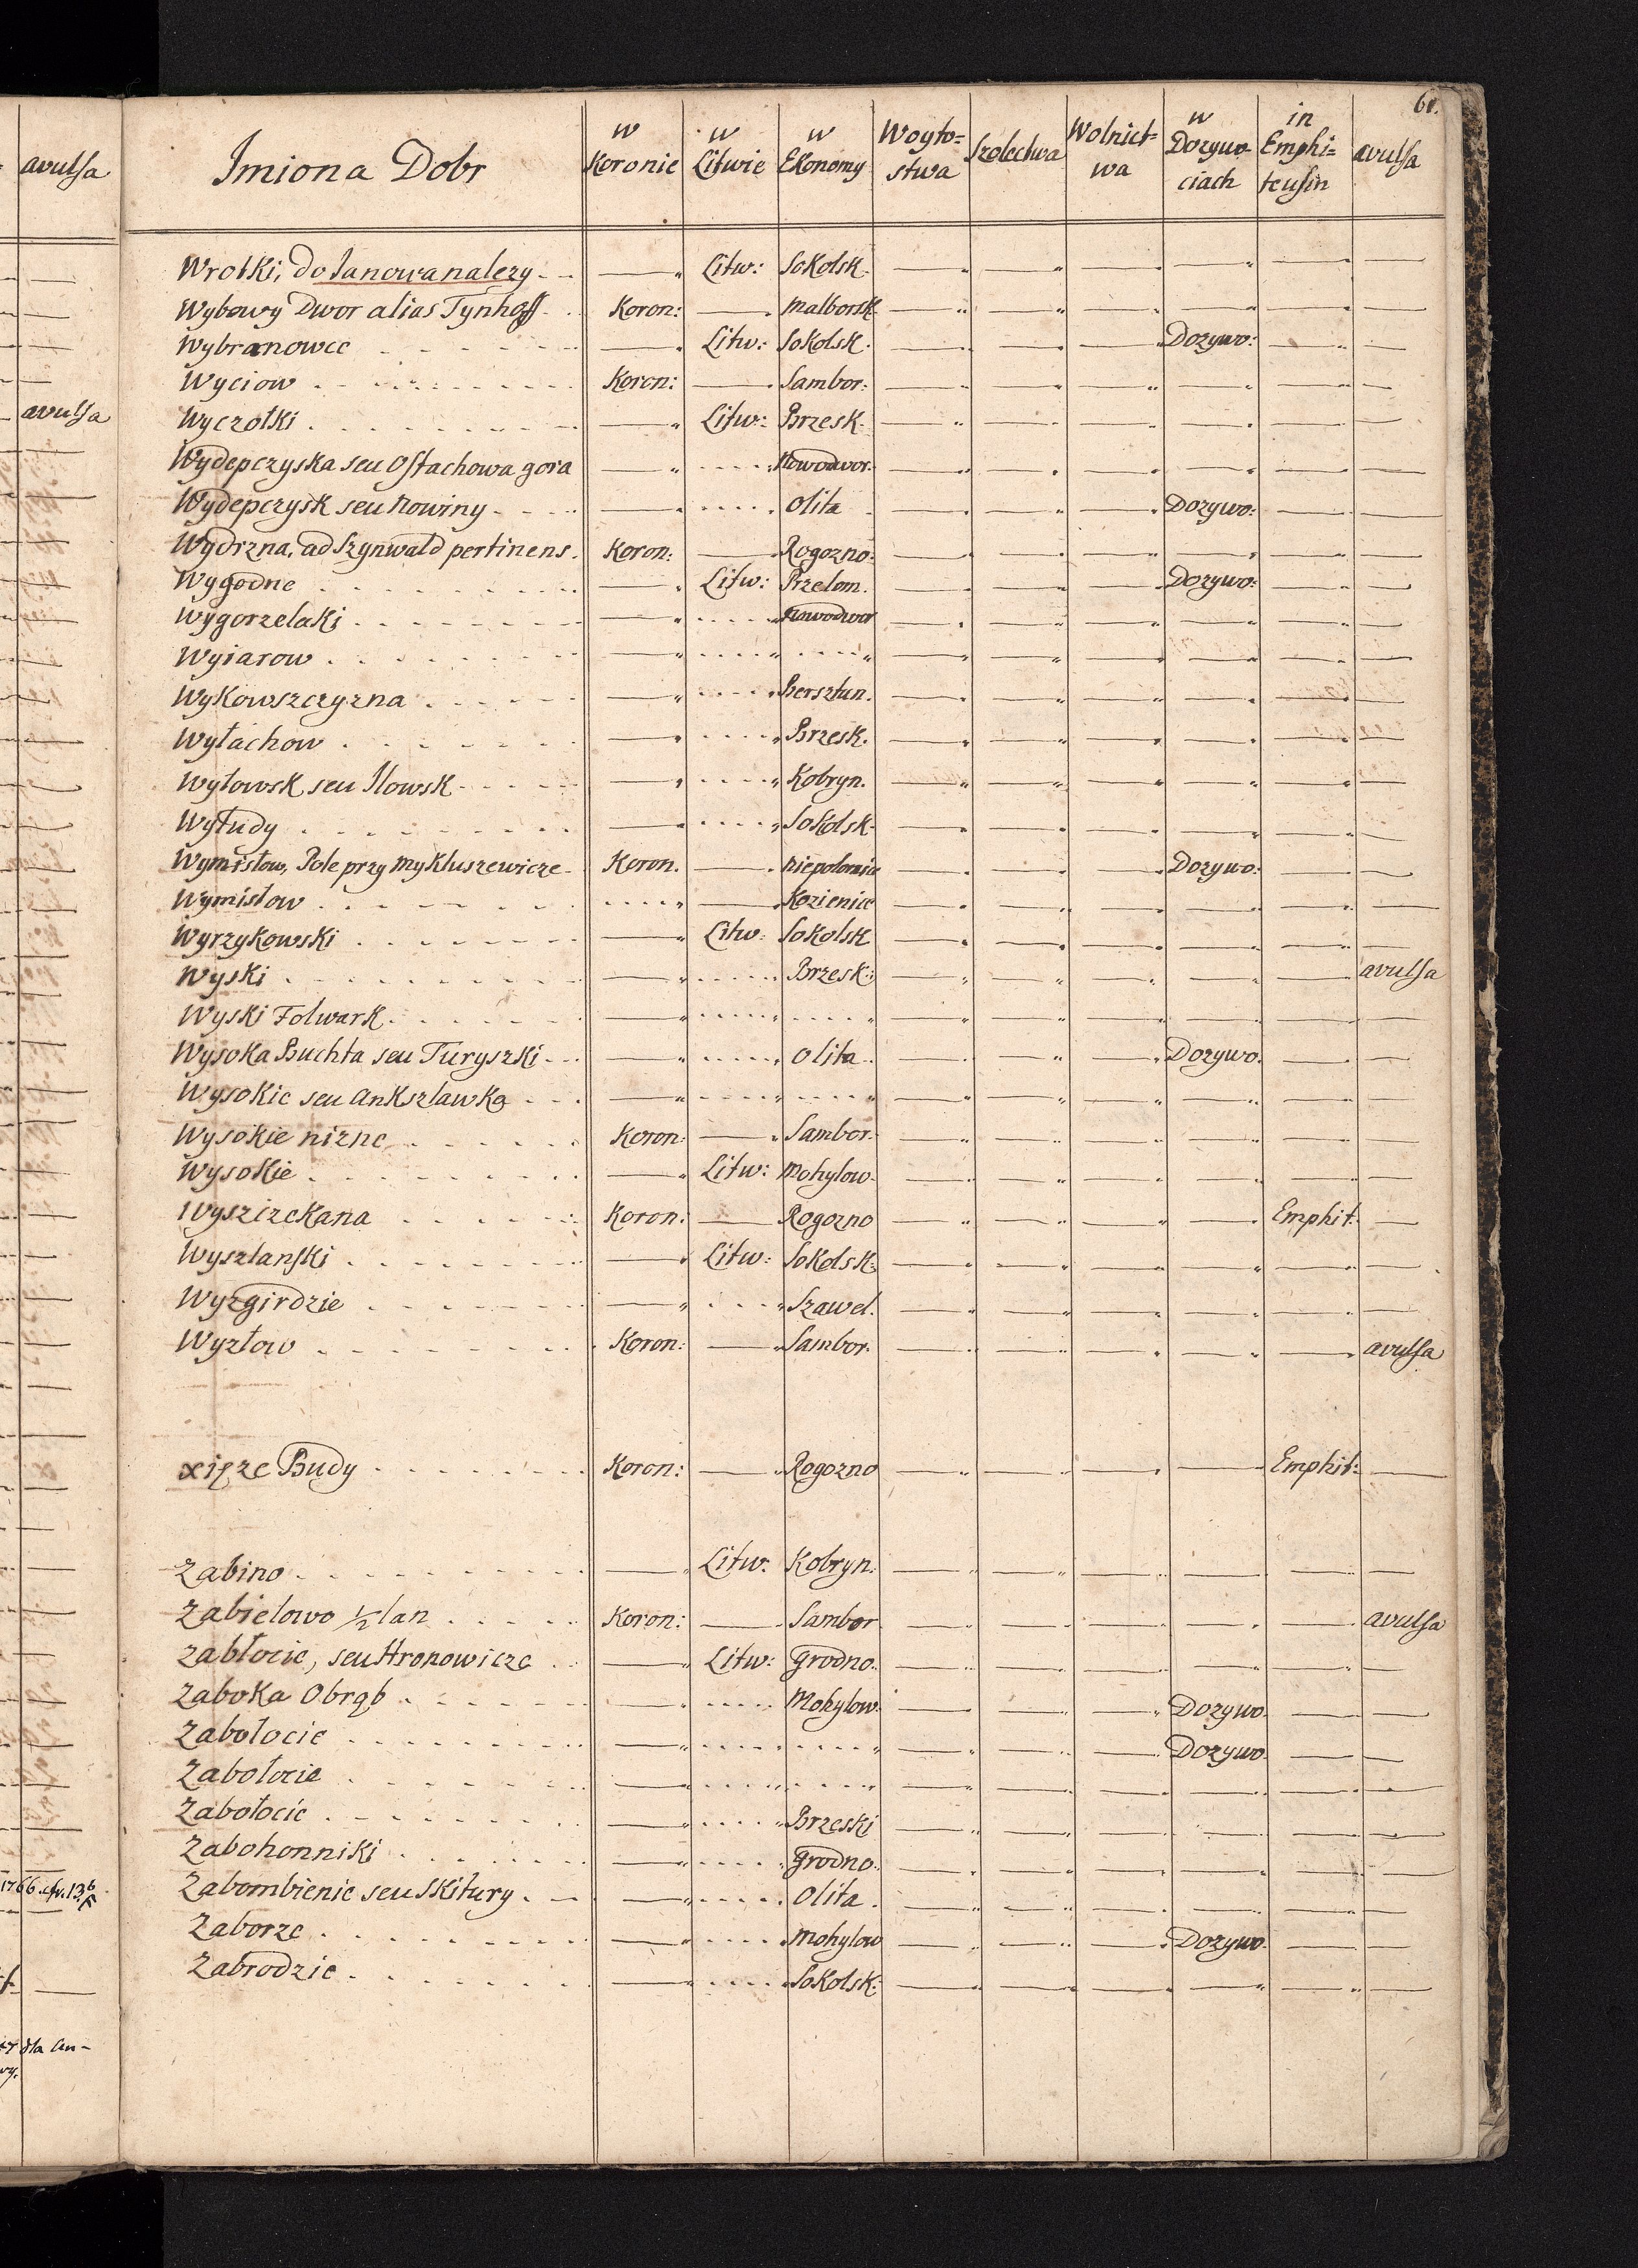 61.
avulsa
Imiona Dobr | w Koronie | w Litwie | w Ekonomy | Woyto=stwa | Szolectwa | Wolnict=wa | w Dozywo-ciach | in Emphi=teusin | avulsa
Wrotki, do Janowa nalezy - - | — | Litw: | Sokolsk. | — | — | — | — | — | —
Wybowy Dwor alias Tynhoff - | Koron: | — | Malborsk. | — | — | — | — | — | —
Wybranowce | — | Litw: | Sokolsk. | — | — | — | Dozywo: | — | —
Wyciow | Koron: | — | Sambor: | — | — | — | — | — | —
avulsa
Wyczołki | — | Litw: | Brzesk. | — | — | — | — | — | —
Wydepczyska seu Ostachowa gora | — | .... | Nowodwor. | — | — | — | — | — | —
Wydepczysk seu Nowiny | — | .... | Olita | — | — | — | Dozywo: | — | —
Wydrzna, ad Szynwald pertinens. | Koron: | — | Rogozno: | — | — | — | — | — | —
Wygodne | — | Litw: | Przelom. | — | — | — | Dozywo: | — | —
Wygorzelaki | — | .... | Nowodwor | — | — | — | — | — | —
Wyiarow | — | .... | .... | — | — | — | — | — | —
Wykowszczyzna | — | .... | Bersztun. | — | — | — | — | — | —
Wyłachow | — | .... | Brzesk. | — | — | — | — | — | —
Wyłowsk seu Ilowsk | — | .... | Kobryn. | — | — | — | — | — | —
Wyłudy | — | .... | Sokolsk. | — | — | — | — | — | —
Wymisłow, Pole przy Mykluszewicze | Koron. | — | Niepolomic | — | — | — | Dozywo: | — | —
Wymisłow | .... | — | Kozienic | — | — | — | — | — | —
Wyrzykowski | — | Litw: | Sokolsk | — | — | — | — | — | —
Wyski | — | .... | Brzesk: | — | — | — | — | — | avulsa
Wyski Folwark | — | .... | .... | — | — | — | — | — | —
Wysoka Buchta seu Turyszki | — | .... | Olita | — | — | — | Dozywo. | — | —
Wysokie seu Ankszlawka | — | .... | .... | — | — | — | — | — | —
Wysokie nizne | Koron: | — | Sambor. | — | — | — | — | — | —
Wysokie | — | Litw: | Mohylow. | — | — | — | — | — | —
Wyszczekana | Koron: | — | Rogozno | — | — | — | — | Emphit. | —
Wyszlanski | — | Litw: | Sokolsk: | — | — | — | — | — | —
Wyzgirdzie | — | .... | Szawel. | — | — | — | — | — | —
Wyzłow | Koron: | — | Sambor. | — | — | — | — | — | avulsa
xięze Budy | Koron: | — | Rogozno | — | — | — | — | Emphit: | —
Zabino | — | Litw: | Kobryn: | — | — | — | — | — | —
Zabielowo ½ lan | Koron: | — | Sambor | — | — | — | — | — | avulsa
Zabłocie, seu Hronowicze | — | Litw: | Grodno. | — | — | — | — | — | —
Zaboka Obrąb | — | .... | Mohylow. | — | — | — | Dozywo. | — | —
Zabolocie | — | .... | .... | — | — | — | Dozywo. | — | —
Zabołocie | — | .... | .... | — | — | — | — | — | —
Zabołocie | — | .... | Brzeski | — | — | — | — | — | —
Zabohonniki | — | .... | Grodno. | — | — | — | — | — | —
Zabombienie seu Skitury | — | .... | Olita. | — | — | — | — | — | —
Zaborze | — | .... | Mohylow | — | — | — | Dozywo. | — | —
Zabrodzie | — | .... | Sokolsk: | — | — | — | — | — | —